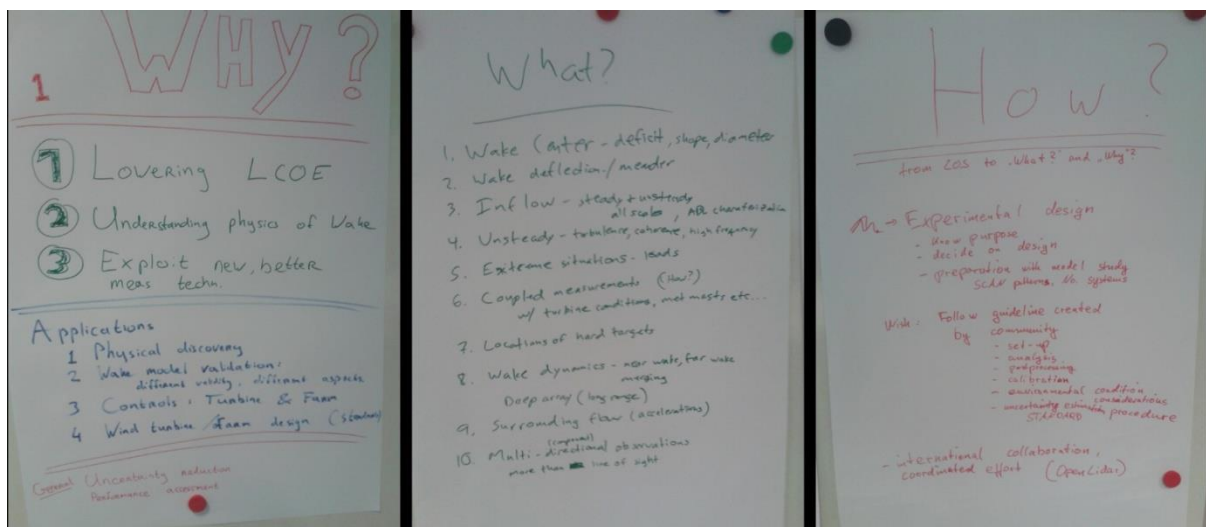 1 WHY?
1 Lovering LCOE
2 Understanding physics of Wake
3 Exploit new, better
meas techn.
Applications
1 Physical discovery
2 Wake model validation:
different validity, different aspects
3 Controls: Turbine & Farm
4 Wind turbine / Farm design
General Uncertainty reduction
Performance assessment
What?
1. Wake Center - deficit, shape, diameter
2. Wake deflection / meander
3. Inflow - steady + unsteady
all scales, ABL characterization
4. Unsteady - turbulence, coherence, high frequency
5. Extreme situations - loads
6. Coupled measurements (How?)
w/ turbine conditions, met masts etc...
7. Locations of hard targets
8. Wake dynamics - near wake, far wake
merging
Deep array (long range)
9. Surrounding flow (accelerations)
10. Multi-directional observations
more than line of sight
How?
from LOS to "What?" and "Why"?
Experimental design
- know purpose
- decide on design
- preparation with model study
scan patterns, No. systems
Wish: Follow guideline created
by community
- set-up
- analysis
- postprocessing
- calibration
- environmental condition
- uncertainty estimation considerations
STANDARD procedure
- international collaboration,
coordinated effort (OpenLidar)